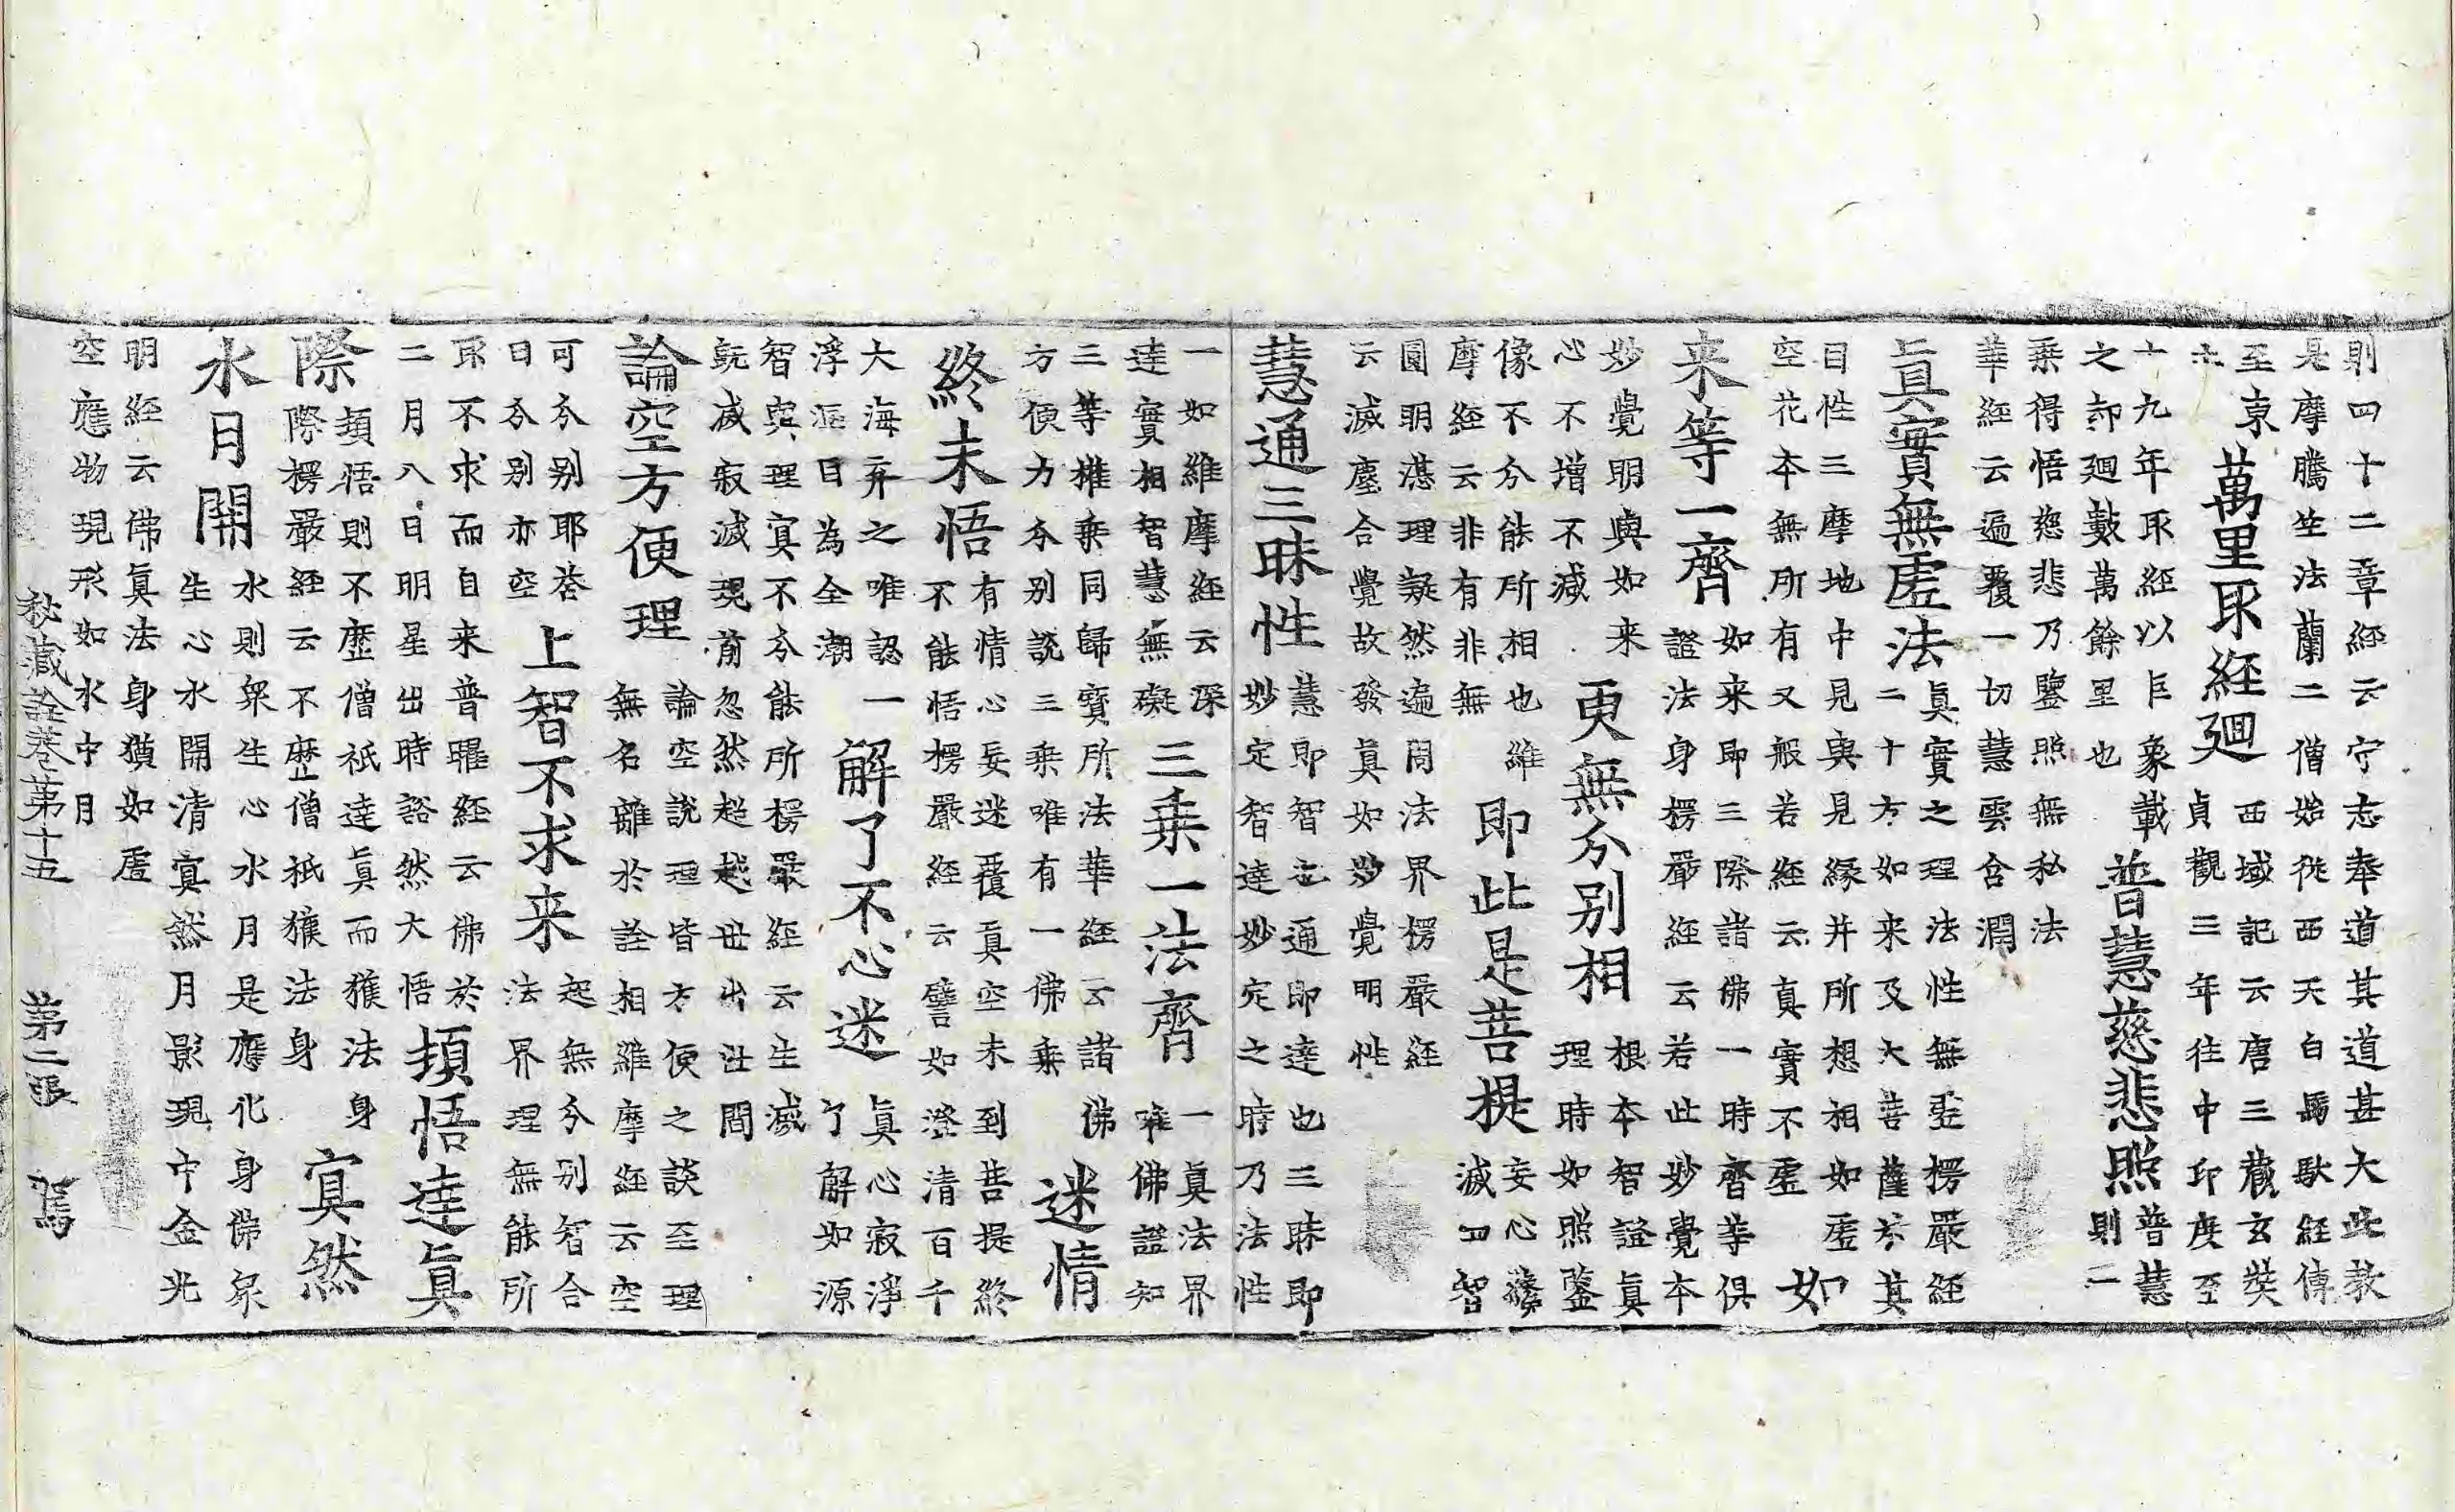 則四十二章經云守志奉道其道甚大此教
是摩騰竺法蘭二僧始從西天白馬駄經傳
至京
六
萬里取經廻
西域記云唐三藏玄奘
貞觀三年往中印度至
十九年取經以巨象載
之却廻數萬餘里也
普慧慈悲照
普慧
則二
乗得悟慈悲乃鑒照無私法
華經云遍覆一切慧雲含潤
真實無虛法
真實之理法性無虛楞嚴經
二十方如来及大菩薩於其
目性三摩地中見與見縁并所想相如虛
空花本無所有又般若經云真實不虛
如
来等一齊
如来即三際諸佛一時齊等俱
證法身楞嚴經云若此妙覺本
妙覺明與如来
心不增不減
更無分別相
根本智證真
理時如照鑒
像不分能所相也維
摩經云非有非無
即此是菩提
妄心纔
滅曰智
圓明湛理凝然遍周法界楞嚴經
云滅塵合覺故發真如妙覺明性
慧通三昧性
慧即智也通即達也三昧即
妙定智達妙定之時乃法性
一如維摩經云深
達實相智慧無礙
三乗一法齊
一真法界
唯佛證知
三等推乗同歸寶所法華經云諸佛
方便力分別說三乗唯有一佛乗
迷情
終未悟
有情心妄迷覆真空未到菩提終
不能悟楞嚴經云譬如澄清百千
大海弃之唯認一
浮漚目為全潮
解了不心迷
真心寂淨
了解如源
智與理冥不分能所楞嚴經云生滅
既滅寂滅現前忽然超越世出世間
論空方便理
論空說理皆方便之談至理
無名離於詮相維摩經云空
可分別耶答
曰分別亦空
上智不求来
起無分別智合
法界理無能所
取不求而自来普曜經云佛於
二月八日明星出時豁然大悟
頓悟達真
際
頓悟則不歷僧祇達真而獲法身
際楞嚴經云不歷僧祇獲法身
冥然
水月開
水則衆生心水月是應化身佛衆
生心水開清冥然月影現中金光
明經云佛真法身猶如虛
空應物現形如水中月
秘藏詮卷第十五 第二張